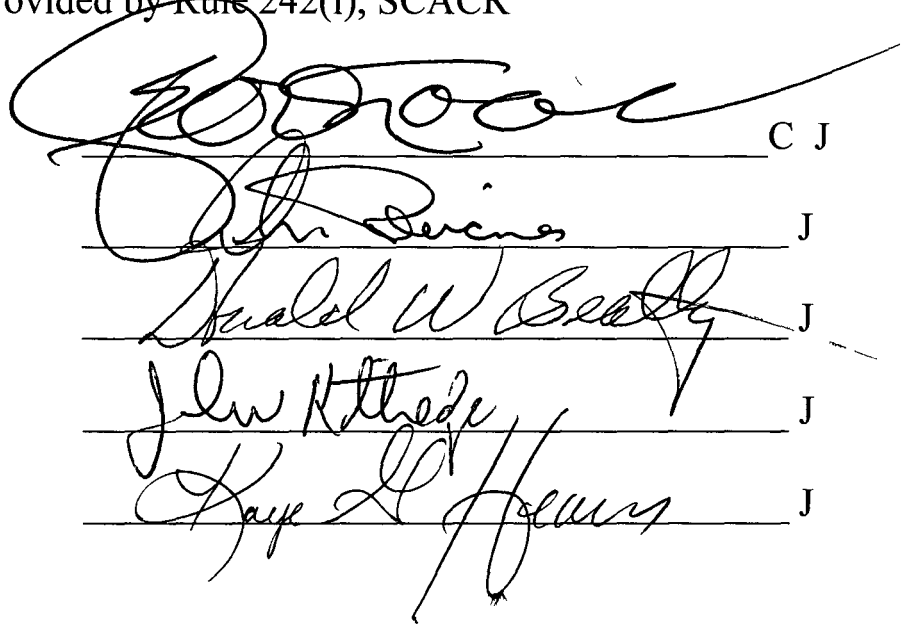 ovided by Rule 242(i), SCACR
C J
J
Donald W Beatty J
John Kittredge J
Kaye G Hearn J